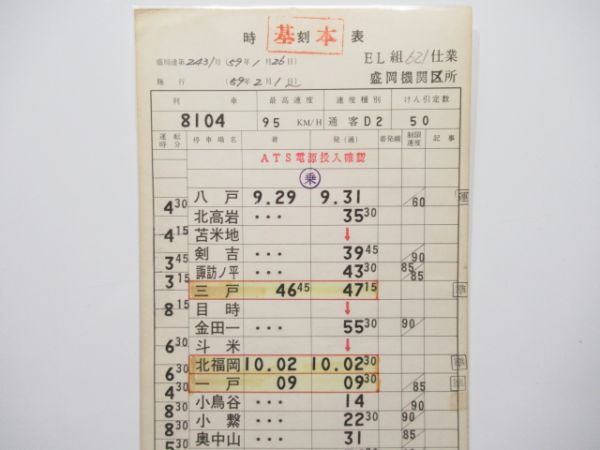 時 基 刻 本 表
盛局達第2431号(59年1月26日) EL組621仕業
施行(59年2月1日) 盛岡機関区所
列車 最高速度 速度種別 けん引定数
8104 95 KM/H 通客D2 50
運転時分 停車場名 着 発(通) 着発線 制限速度 記事
ATS電源投入確認
乗
八戸 9.29 9.31 60
4 30
北高岩 ・・・ 35 30
苫米地 ↓
4 15
剣吉 ・・・ 39 45 90
3 45
諏訪ノ平 ・・・ 43 30 85 85
3 15
三戸 46 45 47 15
目時 ↓
8 15
金田一 ・・・ 55 30 90
斗米 ↓
6 30
北福岡 10.02 10.02 30
6 30
一戸 09 09 30 85
4 30
小鳥谷 ・・・ 14 90
8 30
小繋 ・・・ 22 30 90
8 30
奥中山 ・・・ 31 85